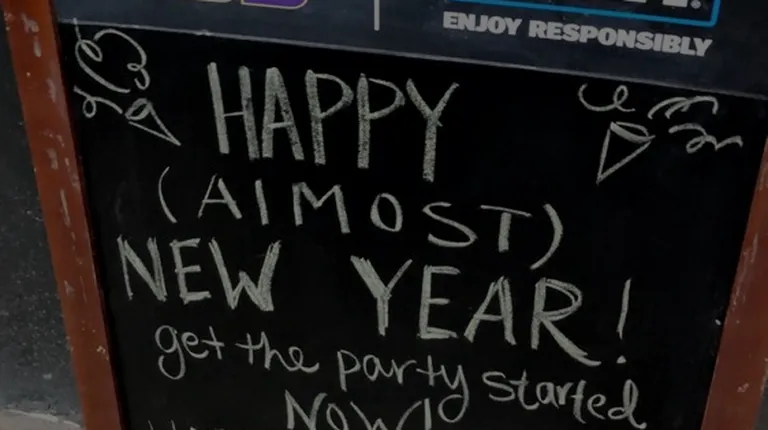 ENJOY RESPONSIBLY
HAPPY
(AlMOST)
NEW YEAR!
get the party started
NOW!